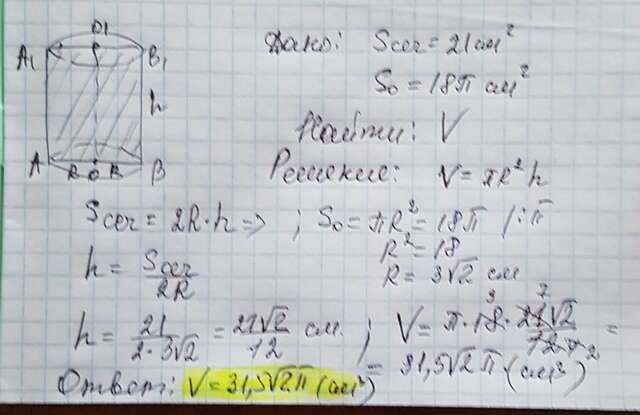 O1
A1 B1
h
A R O R B
Дано: Sсеч = 21 см²
S₀ = 18π см²
Найти: V
Решение: V = πR²h
Sсеч = 2R·h => ; S₀ = πR² = 18π |:π
R² = 18
h = Sсеч/2R
R = 3√2 см
h = 21/(2·3√2) = 21√2/12 см. ; V = π·18·21√2/12 =
= 31,5√2π (см³)
Ответ: V = 31,5√2π (см³)